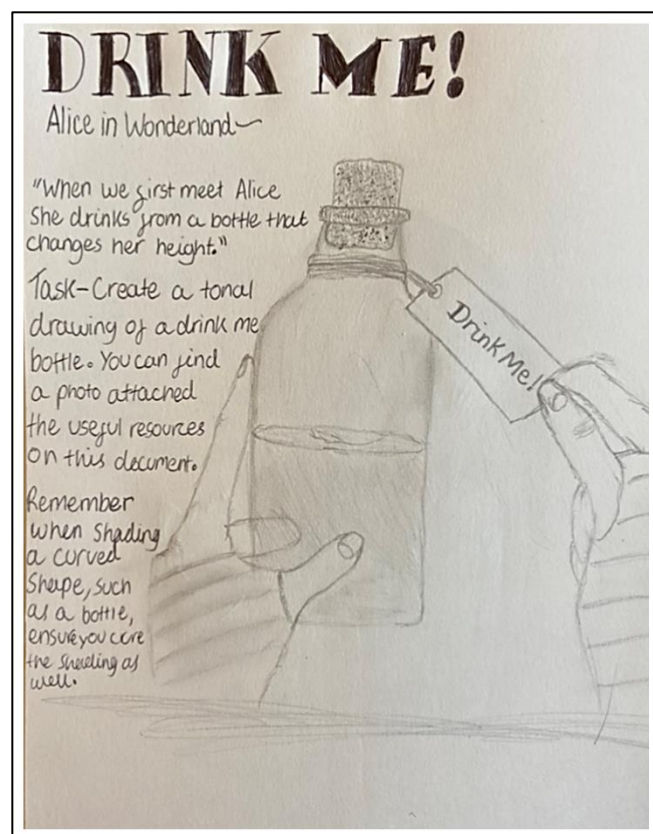 DRINK ME!
Alice in Wonderland~
"When we first meet Alice
She drinks from a bottle that
changes her height."
Task-Create a tonal
drawing of a drink me
bottle. You can find
a photo attached
the useful resources
on this document.
Remember
when Shading
a curved
Shape, such
as a bottle,
ensure you
the shading as
well.
Drink Me!